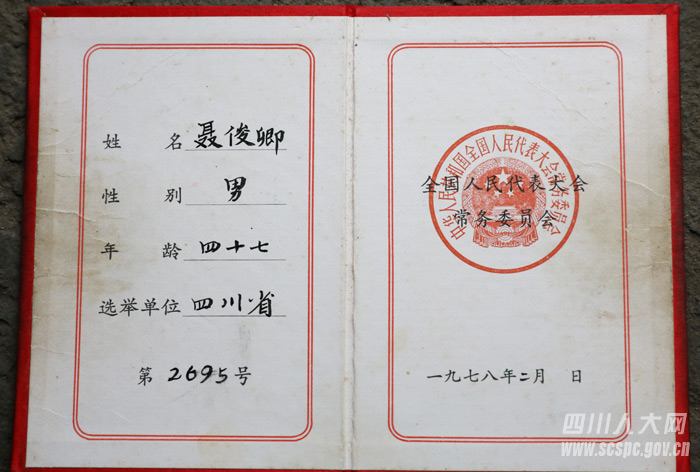 姓 名 聂俊卿
性 别 男
年 龄 四十七
选举单位 四川省
第 2695 号
中华人民共和国全国人民代表大会常务委员会
全国人民代表大会
常务委员会
一九七八年二月 日
四川人大网
www.scspc.gov.cn